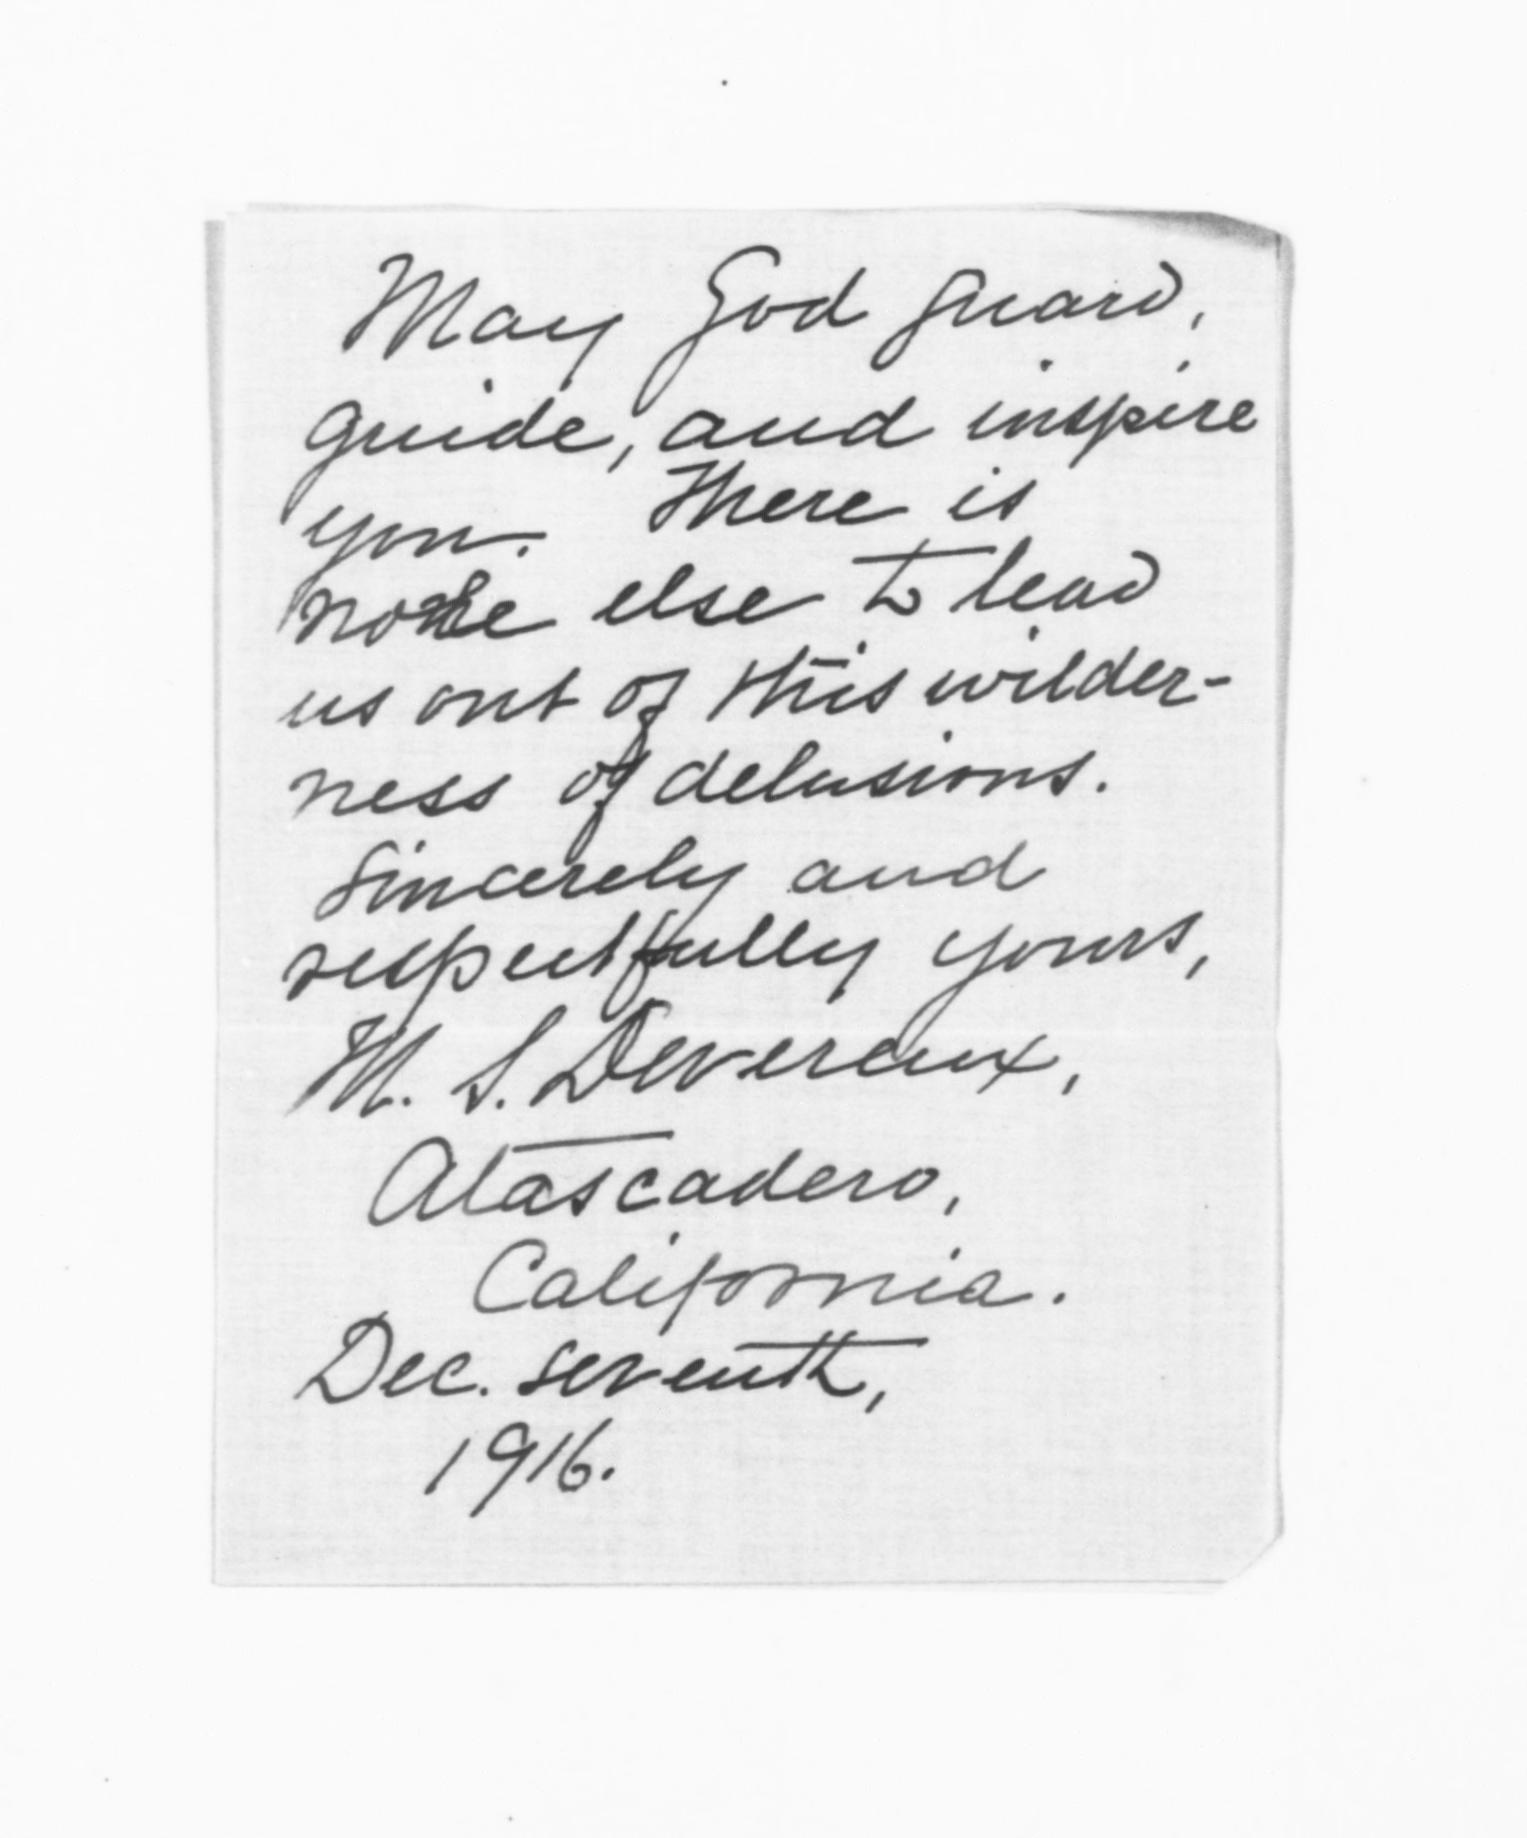 May God guard,
guide, and inspire
you. There is
none else to lead
us out of this wilder-
ness of delusions.
Sincerely and
respectfully yours,
M. S. Devereux,
Atascadero,
California.
Dec. seventh,
1916.